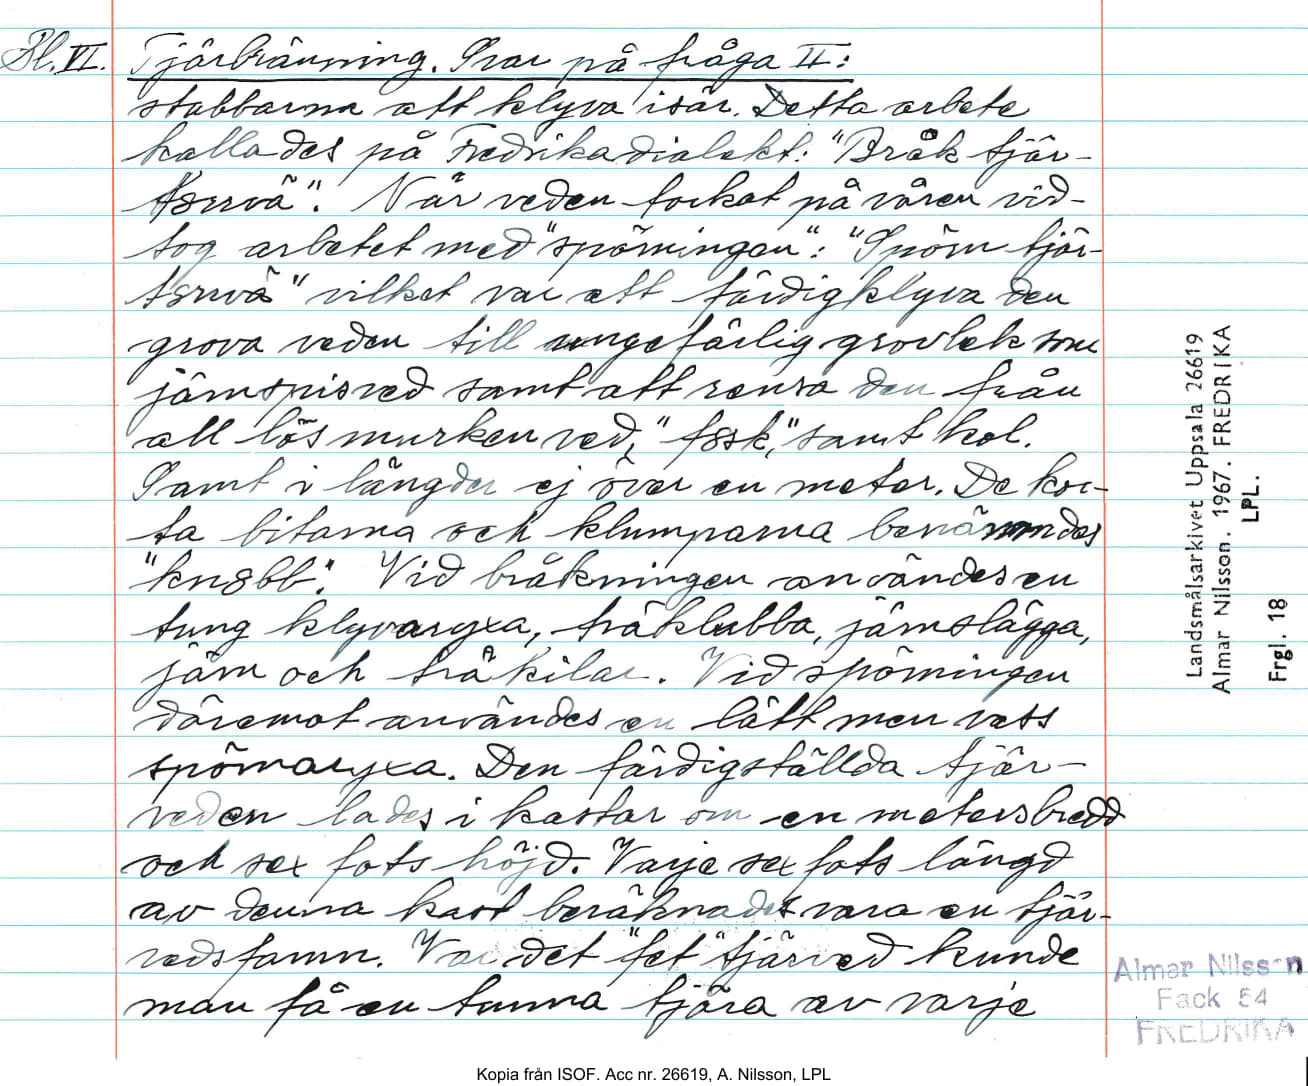 Bl. VI. Tjärbränning. Svar på fråga II:
stabbarna att klyva isär. Detta arbete
kallades på Fredrikadialekt: "Bråk tjär-
När veden torkat på våren vid-
tog arbetet med "spörningen": "Spörn tjär-
vilket var att färdigklyva den
grova veden till ungefärlig grovlek som
järnspisved samt att rensa den från
all lös murken ved, samt kol.
Samt i längder ej över en meter. De kor-
ta bitarna och klumparna benämndes
"kn8bb". Vid bråkningen användes en
tung klyvaryxa, träklubba, järnslägga,
järn och träkilar. Vid spörningen
däremot användes en lätt men vass
spörnaryxa. Den färdigställda tjär-
veden lades i kastar om en metersbredd
och sex fots höjd. Varje sex fots längd
av denna kast beräknades vara en tjär-
vedsfamn. Var det "fet" tjärved kunde
man få en tunna tjära av varje
Landsmålsarkivet Uppsala 26619
Almar Nilsson. 1967. FREDRIKA
LPL.
Frgl. 18
Almar Nilsson
Fack 54
FREDRIKA
Kopia från ISOF. Acc nr. 26619, A. Nilsson, LPL